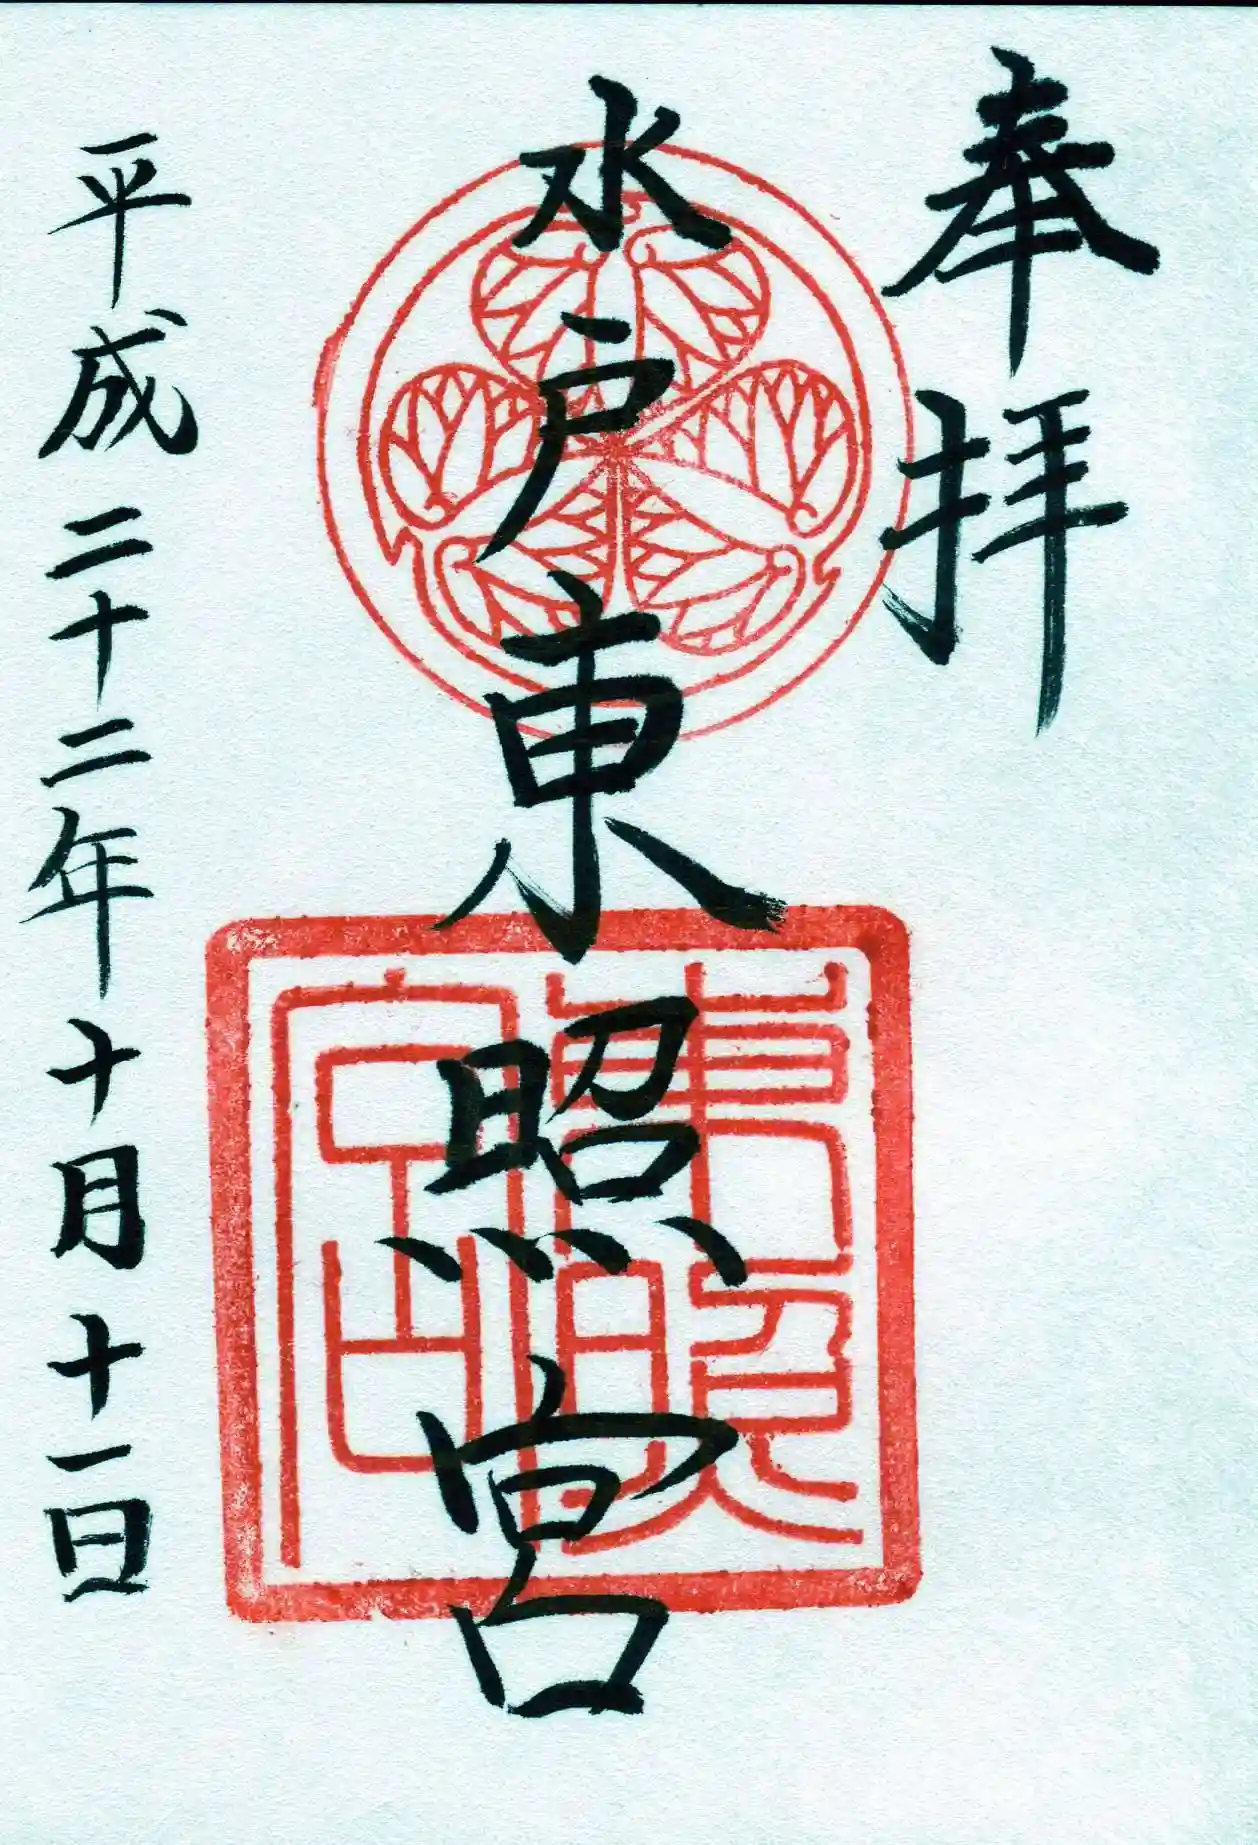 奉拝
水戸東照宮
東照宮
平成二十二年十月十一日